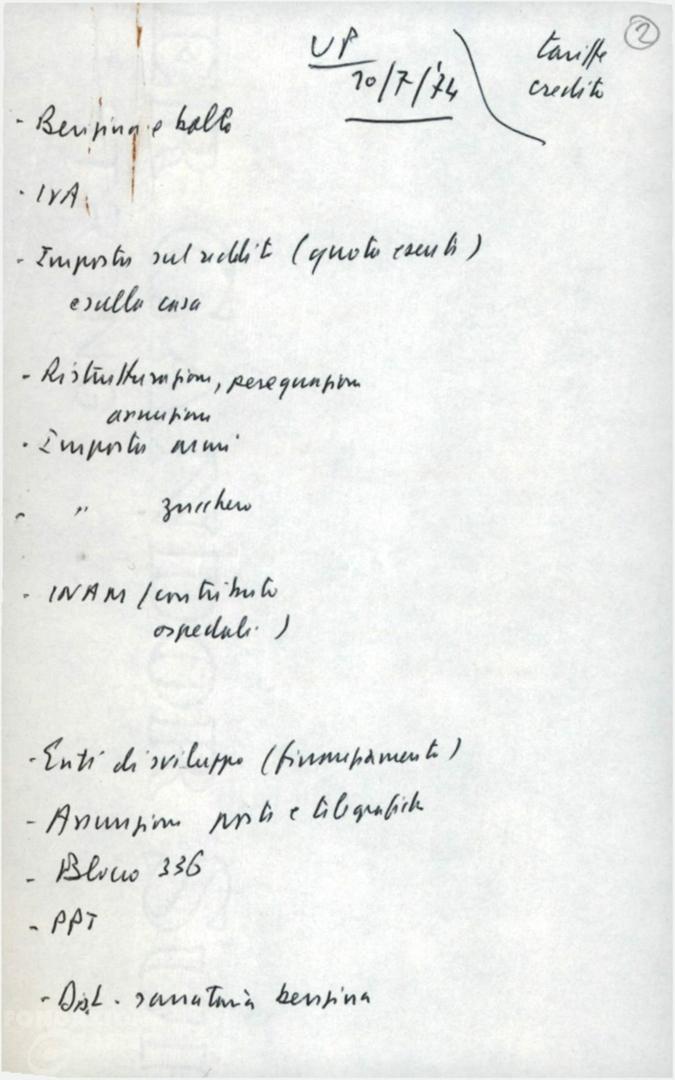 2
UP
10/7/'74
tariffe
credito
- Benzina e bollo
- IVA
- Imposta sul reddito (quote esenti)
e sulla casa
- Ristrutturazioni, perequazioni
assunzioni
- Imposta armi
- " zucchero
- INAM (contributo
ospedali)
- Enti di sviluppo (finanziamento)
- Assunzioni poste e telegrafiche
- Blocco 336
- PPT
- sanatoria benzina